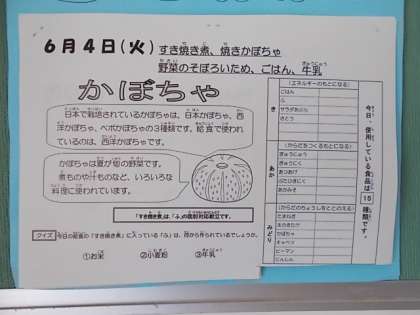 6月4日(火)
すき焼き煮、焼きかぼちゃ
野菜のそぼろいため、ごはん、牛乳
かぼちゃ
日本で栽培されているかぼちゃは、日本かぼちゃ、西
洋かぼちゃ、ペポかぼちゃの3種類です。給食で使われ
ているのは、西洋かぼちゃです。
かぼちゃは夏が旬の野菜です。
煮ものや汁ものなど、いろいろな
料理に使われています。
「すき焼き煮」は、「ふ」の統計対応献立です。
クイズ
今日の給食の「すき焼き煮」に入っている「ふ」は、何から作られているでしょうか。
①お米 ②小麦粉 ③牛乳
今日、使用している食品は15種類です。
き
(エネルギーのもとになる)
ごはん
ふ
サラダあぶら
さとう
あか
(からだをつくるもとになる)
ぎゅうにゅう
ぎゅうにく
あつあげ
ぶたひきにく
あかみそ
みどり
(からだのちょうしをととのえる)
たまねぎ
えのきたけ
かぼちゃ
キャベツ
ピーマン
にんじん